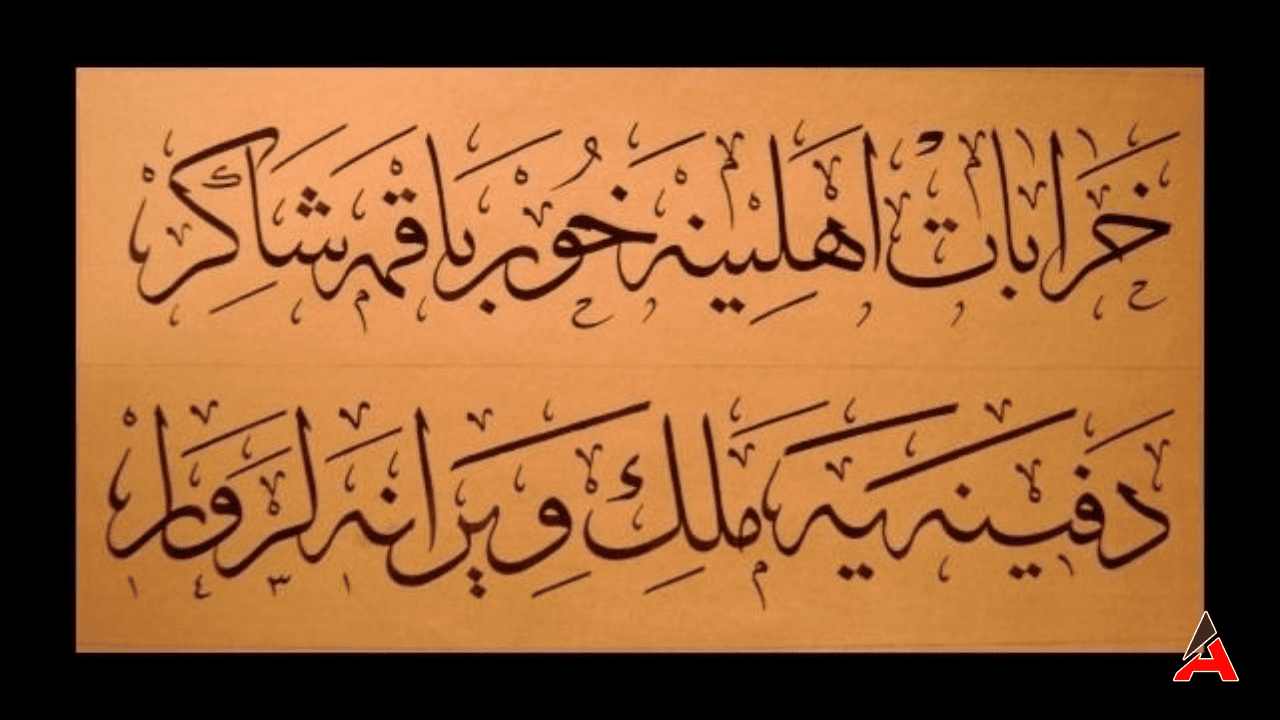 خَرَابَاتْ اَهْلِينَه خُورْ بَاقْمَه شَاكِرْ
دَفِينَه يَه مَلِكْ وِيرَانَه لَرْ وَارْ
١٤٣١
A